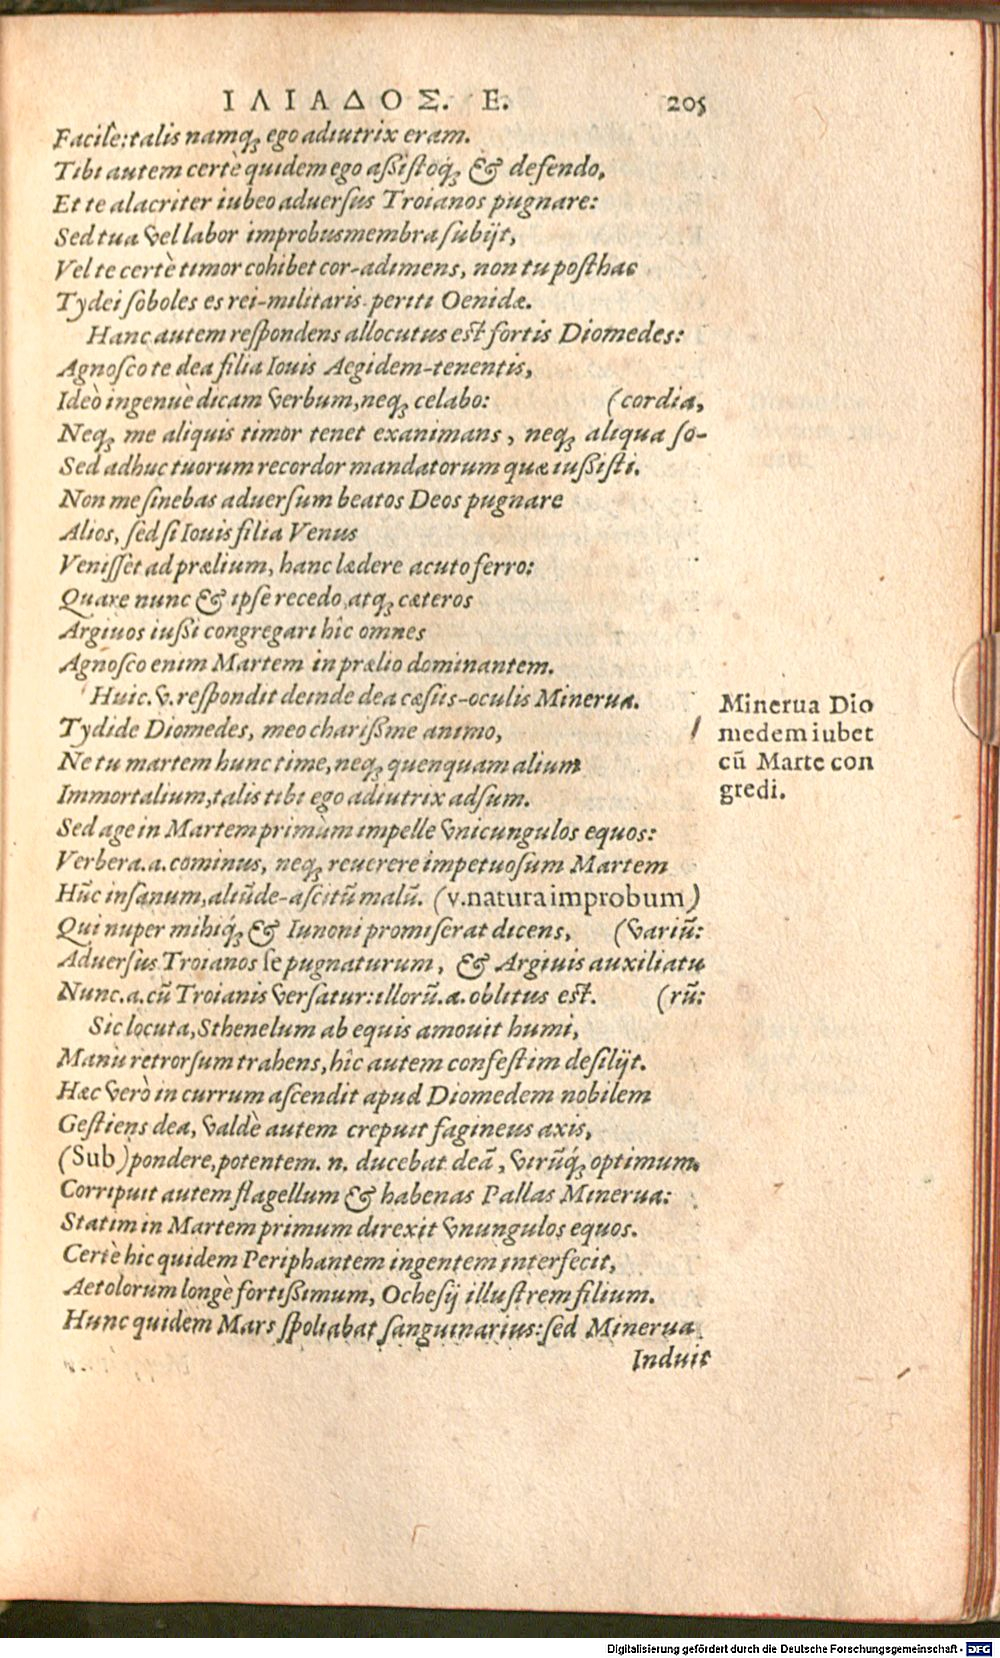 ΙΛΙΑΔΟΣ. Ε. 205
Facilè: talis namq; ego adiutrix eram.
Tibi autem certè quidem ego aßistoq́; & defendo,
Et te alacriter iubeo aduersus Troianos pugnare:
Sed tua vel labor improbus membra subijt,
Vel te certè timor cohibet cor-adimens, non tu posthac
Tydei soboles es rei-militaris periti Oenidæ.
Hanc autem respondens allocutus est fortis Diomedes:
Agnosco te dea filia Iouis Aegidem-tenentis,
Ideò ingenuè dicam verbum, neq; celabo: (cordia,
Neq; me aliquis timor tenet exanimans, neq; aliqua so-
Sed adhuc tuorum recordor mandatorum quæ iußisti.
Non me sinebas aduersum beatos Deos pugnare
Alios, sed si Iouis filia Venus
Venisset ad prælium, hanc lædere acuto ferro:
Quare nunc & ipse recedo, atq; cæteros
Argiuos iußi congregari hîc omnes
Agnosco enim Martem in prælio dominantem.
Huic. v. respondit deinde dea cæsiis-oculis Minerua.
Tydide Diomedes, meo charißme animo,
Ne tu martem hunc time, neq; quenquam alium
Immortalium, talis tibi ego adiutrix adsum.
Sed age in Martem primùm impelle vnicungulos equos:
Verbera. a. cominus, neq; reuerere impetuosum Martem
Hũc insanum, aliũde-ascitũ malũ. (v. natura improbum)
Qui nuper mihiq́; & Iunoni promiserat dicens, (variũ:
Aduersus Troianos se pugnaturum, & Argiuis auxiliatu
Nunc. a. cũ Troianis versatur: illorũ. a. oblitus est. (rũ:
Sic locuta, Sthenelum ab equis amouit humi,
Manu retrorsum trahens, hîc autem confestim desilijt.
Hæc verò in currum ascendit apud Diomedem nobilem
Gestiens dea, valdè autem crepuit fagineus axis,
(Sub) pondere, potentem. n. ducebat deã, virũq́; optimum.
Corripuit autem flagellum & habenas Pallas Minerua:
Statim in Martem primum direxit vnungulos equos.
Certè hic quidem Periphantem ingentem interfecit,
Aetolorum longè fortißimum, Ochesij illustrem filium.
Hunc quidem Mars spoliabat sanguinarius: sed Minerua
Induit
Minerua Dio
medem iubet
cũ Marte con
gredi.
Digitalisierung gefördert durch die Deutsche Forschungsgemeinschaft - DFG